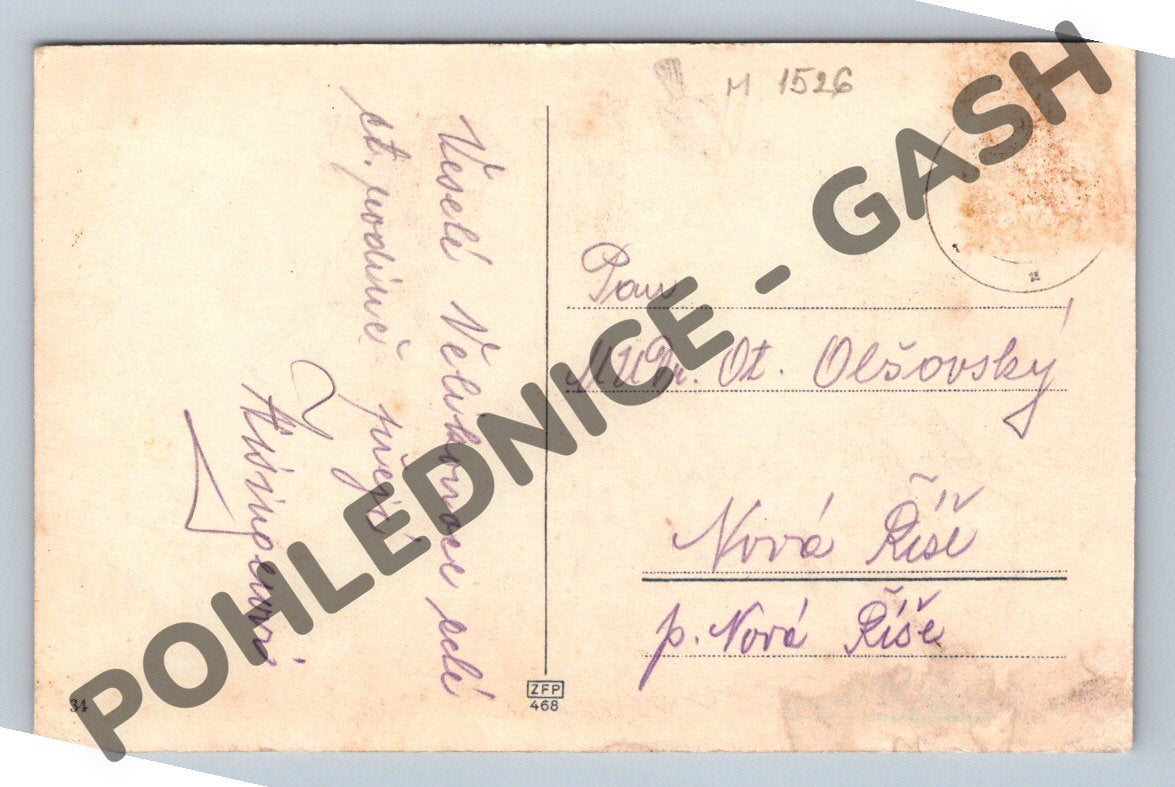 M 1526
Veselé Velikonoce celé
ct. rodině přejí
Pan
MUDr. Ot. Olšovský
Nová Říše
p. Nová Říše
ZFP
468
34
POHLEDNICE - GASH